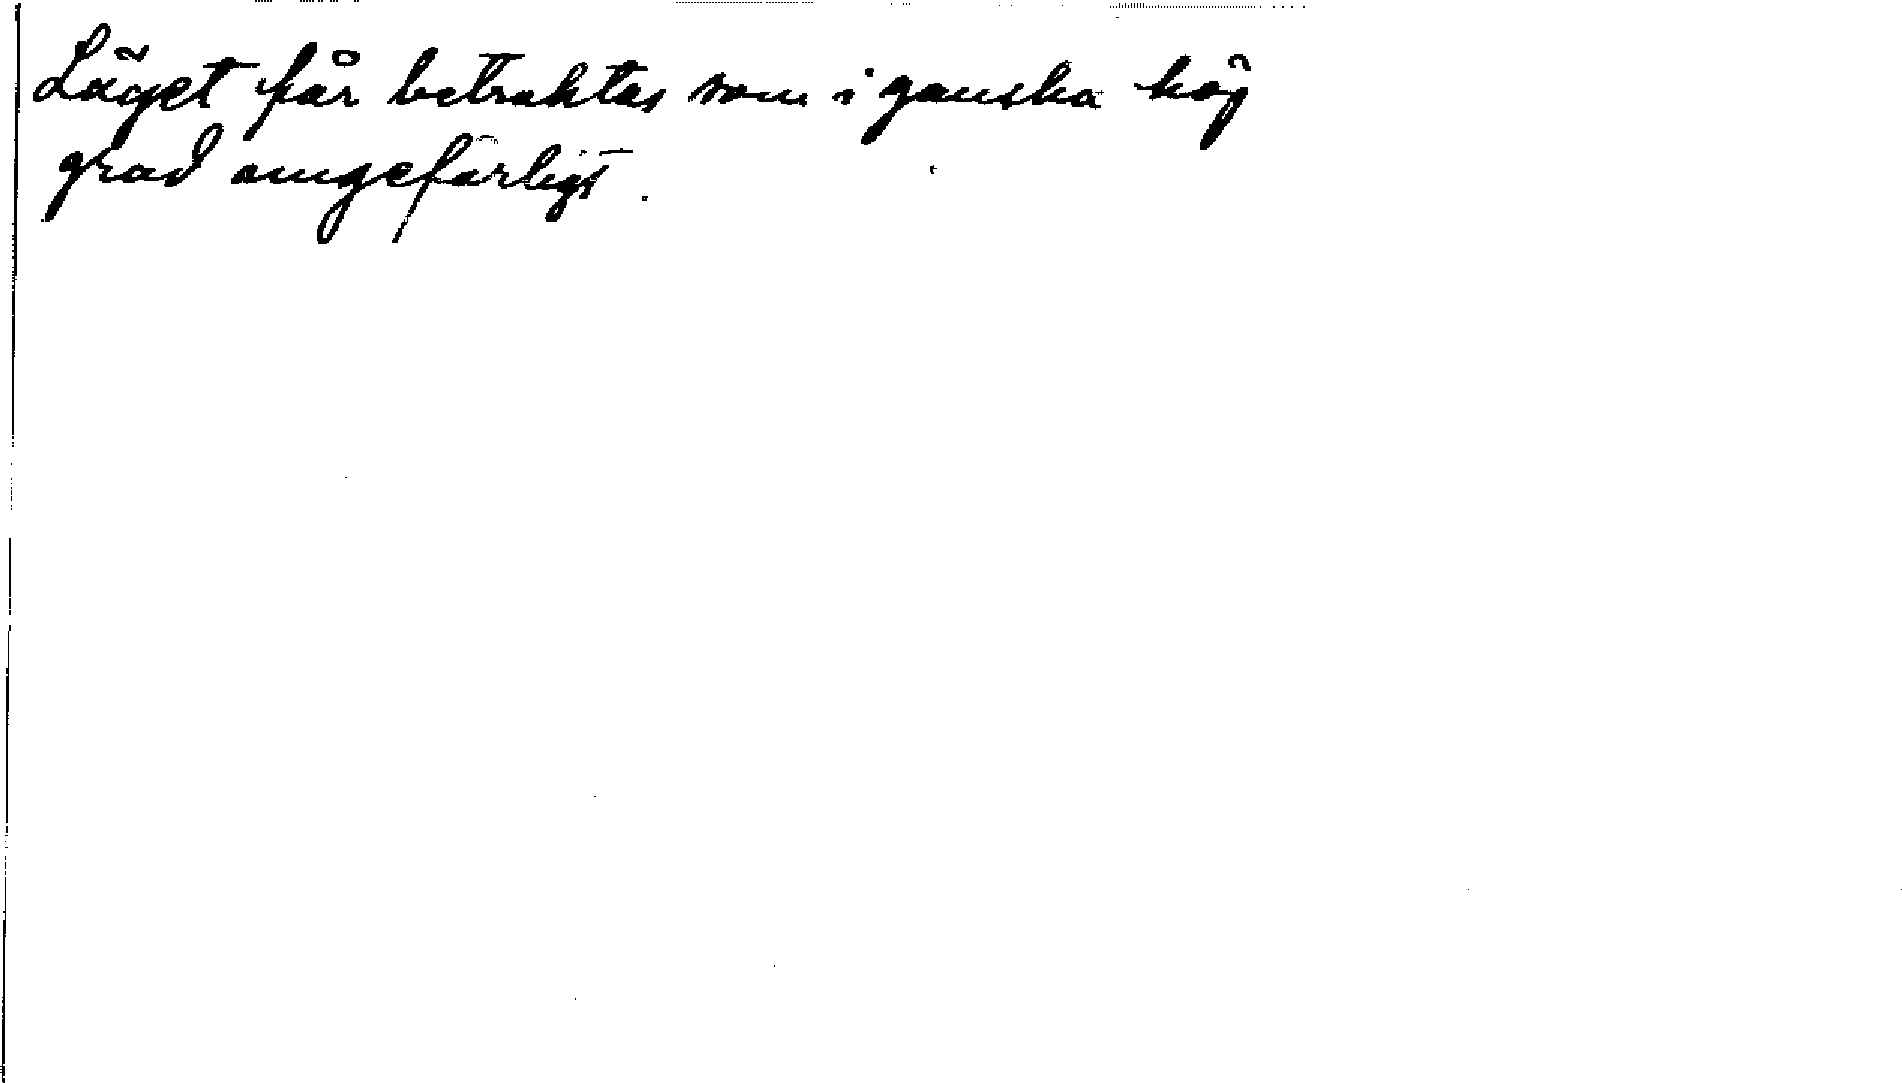 Läget får betraktas som i ganska hög
grad omgefärligt.